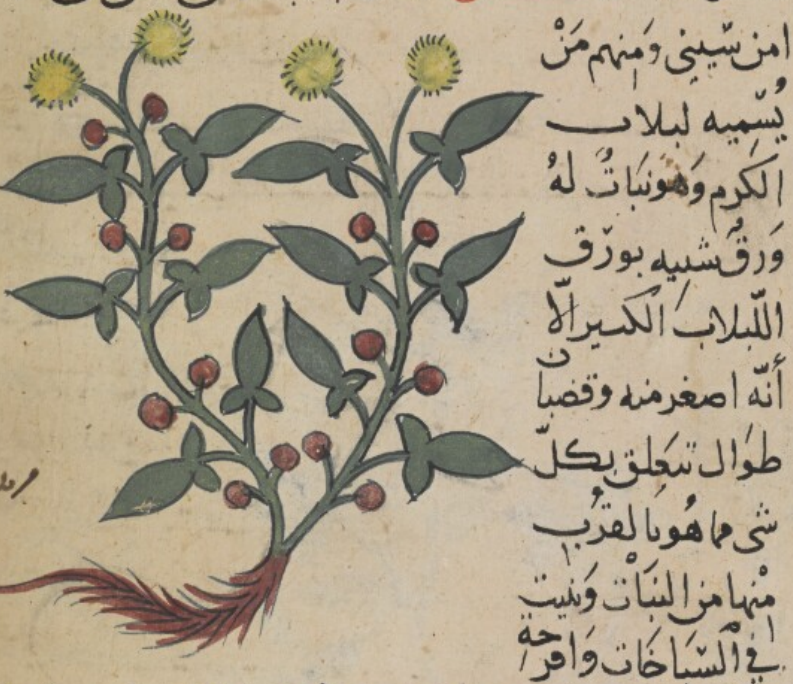 امن شيني وَمنهم مَنْ
يُسّميه لبلاب
الكَرم وَهو نبَاتٌ لهُ
وَرقٌ شبيه بورَق
اللّبلاب الكبير الّا
أنّه اصغر منه وقضبان
طوَال تتعلق بكلّ
شى مما هُو بالقرُب
منها من النبَات وَينبت
في السّباخات وَافرحة